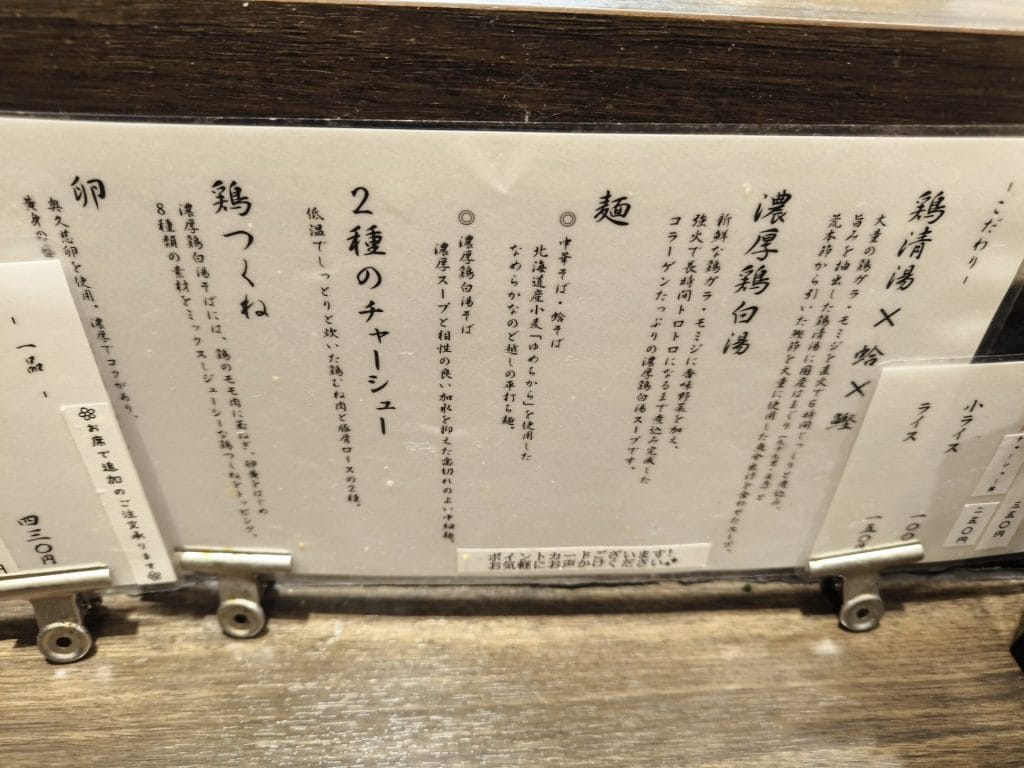 -こだわり-
鶏清湯×蛤×鰹
大量の鶏ガラ・モミジを直火で6時間じっくりと煮込み、
旨みを抽出した鶏清湯に国産はまぐり
荒本節から引いた鰹節を大量に使用した魚介出汁を合わせたスープ。
濃厚鶏白湯
新鮮な鶏ガラ・モミジに香味野菜を加え、
強火で長時間トロトロになるまで煮込み完成した
コラーゲンたっぷりの濃厚鶏白湯スープです。
麺
◎中華そば・蛤そば
北海道産小麦「ゆめちから」を使用した
なめらかなのど越しの平打ち麺。
◎濃厚鶏白湯そば
濃厚スープと相性の良い加水を抑えた歯切れのよい中細麺。
2種のチャーシュー
低温でしっとりと炊いた鶏むね肉と豚肩ロースの2種。
鶏つくね
濃厚鶏白湯そばには、鶏のモモ肉に玉ねぎ、卵黄をはじめ
8種類の素材をミックスしジューシーな鶏つくねをトッピング。
卵
奥久慈卵を使用。濃厚でコクがあり、
黄身の
小ライス
ライス
一〇
一五〇
三五〇円
二五〇円
-一品-
四三〇円
お席で追加のご注文承ります
ポイントカードございます!
お気軽にお声がけください